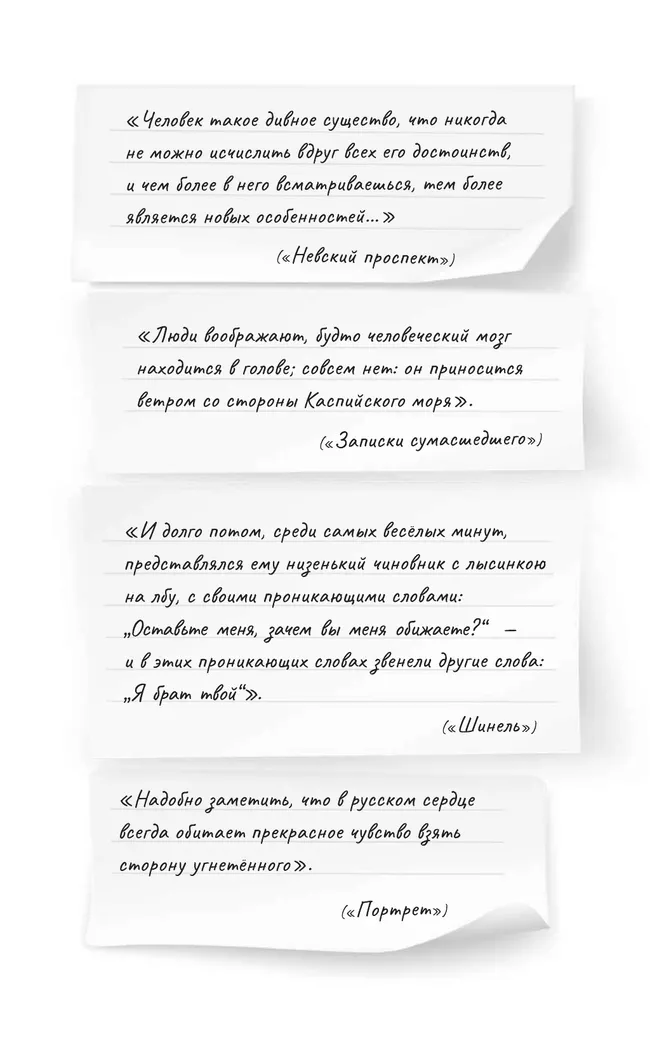 «Человек такое дивное существо, что никогда
не можно исчислить вдруг всех его достоинств,
и чем более в него всматриваешься, тем более
является новых особенностей...»
(«Невский проспект»)
«Люди воображают, будто человеческий мозг
находится в голове; совсем нет: он приносится
ветром со стороны Каспийского моря».
(«Записки сумасшедшего»)
«И долго потом, среди самых весёлых минут,
представлялся ему низенький чиновник с лысинкою
на лбу, с своими проникающими словами:
„Оставьте меня, зачем вы меня обижаете?“ —
и в этих проникающих словах звенели другие слова:
„Я брат твой“».
(«Шинель»)
«Надобно заметить, что в русском сердце
всегда обитает прекрасное чувство взять
сторону угнетённого».
(«Портрет»)